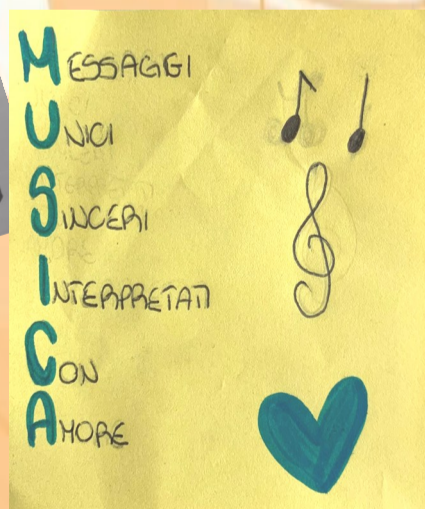 MESSAGGI
UNICI
SINCERI
INTERPRETATI
CON
AMORE